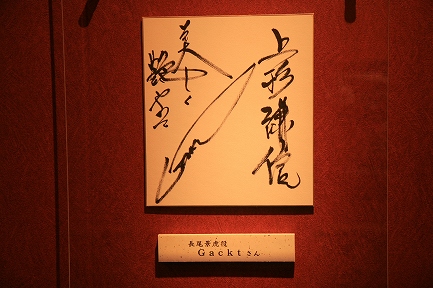 上杉謙信
美しく
Gackt
長尾景虎役
Gacktさん